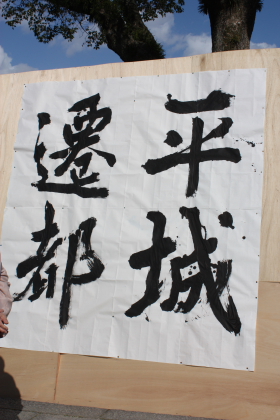 平城
遷都